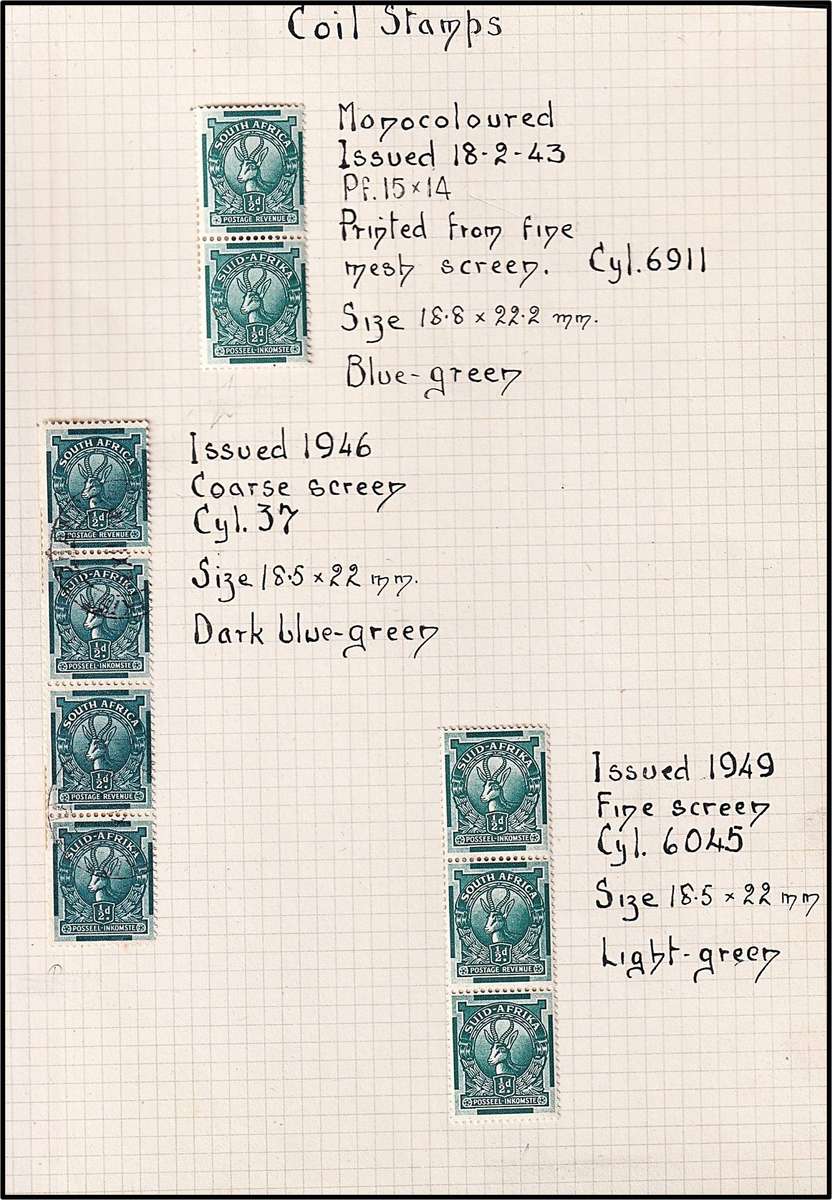 Coil Stamps
SOUTH AFRICA
½d
POSTAGE REVENUE
SUID-AFRIKA
½d
POSSEEL-INKOMSTE
Monocoloured
Issued 18-2-43
Pf. 15 × 14
Printed from fine
mesh screen. Cyl. 6911
Size 18.8 × 22.2 mm.
Blue-green
SOUTH AFRICA
½d
POSTAGE REVENUE
SUID-AFRIKA
½d
POSSEEL-INKOMSTE
SOUTH AFRICA
½d
POSTAGE REVENUE
SUID-AFRIKA
½d
POSSEEL-INKOMSTE
Issued 1946
Coarse screen
Cyl. 37
Size 18.5 × 22 mm.
Dark blue-green
SUID-AFRIKA
½d
POSSEEL-INKOMSTE
SOUTH AFRICA
½d
POSTAGE REVENUE
SUID-AFRIKA
½d
POSSEEL-INKOMSTE
Issued 1949
Fine screen
Cyl. 6045
Size 18.5 × 22 mm
Light-green